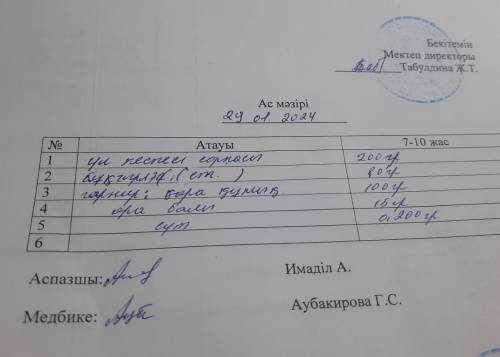 Бекітемін
Мектеп директоры
Табулдина Ж.Т.
Ас мәзірі
29 01. 2024
№ Атауы 7-10 жас
1 ұл кеспесі сорпасы 200 гр
2 (ет. ) 80 гр
3 гарнир: қара құмық 100 гр
4 ара балы 15 гр
5 сүт 0,200 гр
6
Аспазшы: Имаділ А.
Медбике: Аубакирова Г.С.